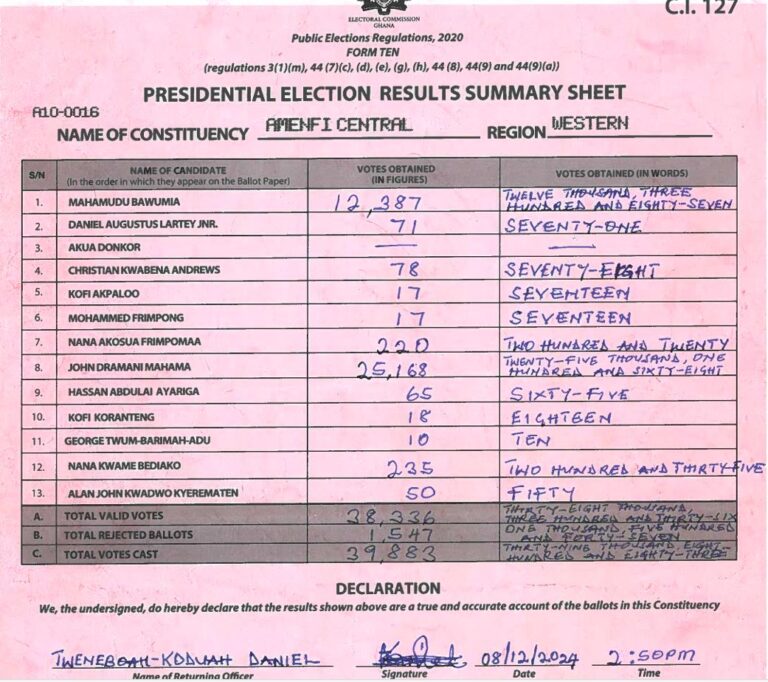 C.I. 127
ELECTORAL COMMISSION
GHANA
Public Elections Regulations, 2020
FORM TEN
(regulations 3(1)(m), 44 (7)(c), (d), (e), (g), (h), 44 (8), 44(9) and 44(9)(a))
PRESIDENTIAL ELECTION RESULTS SUMMARY SHEET
A10-0016
NAME OF CONSTITUENCY AMENFI CENTRAL REGION WESTERN
S/N NAME OF CANDIDATE (In the order in which they appear on the Ballot Paper) VOTES OBTAINED (IN FIGURES) VOTES OBTAINED (IN WORDS)
1. MAHAMUDU BAWUMIA 12,387 TWELVE THOUSAND, THREE HUNDRED AND EIGHTY-SEVEN
2. DANIEL AUGUSTUS LARTEY JNR. 71 SEVENTY-ONE
3. AKUA DONKOR — —
4. CHRISTIAN KWABENA ANDREWS 78 SEVENTY-EIGHT
5. KOFI AKPALOO 17 SEVENTEEN
6. MOHAMMED FRIMPONG 17 SEVENTEEN
7. NANA AKOSUA FRIMPOMAA 220 TWO HUNDRED AND TWENTY
8. JOHN DRAMANI MAHAMA 25,168 TWENTY-FIVE THOUSAND, ONE HUNDRED AND SIXTY-EIGHT
9. HASSAN ABDULAI AYARIGA 65 SIXTY-FIVE
10. KOFI KORANTENG 18 EIGHTEEN
11. GEORGE TWUM-BARIMAH-ADU 10 TEN
12. NANA KWAME BEDIAKO 235 TWO HUNDRED AND THIRTY-FIVE
13. ALAN JOHN KWADWO KYEREMATEN 50 FIFTY
A. TOTAL VALID VOTES 38,336 THIRTY-EIGHT THOUSAND, THREE HUNDRED AND THIRTY-SIX
B. TOTAL REJECTED BALLOTS 1,547 ONE THOUSAND, FIVE HUNDRED AND FORTY-SEVEN
C. TOTAL VOTES CAST 39,883 THIRTY-NINE THOUSAND, EIGHT-HUNDRED AND EIGHTY-THREE
DECLARATION
We, the undersigned, do hereby declare that the results shown above are a true and accurate account of the ballots in this Constituency
TWENEBOAH-KODUAH DANIEL 08/12/2024 2:50PM
Name of Returning Officer Signature Date Time